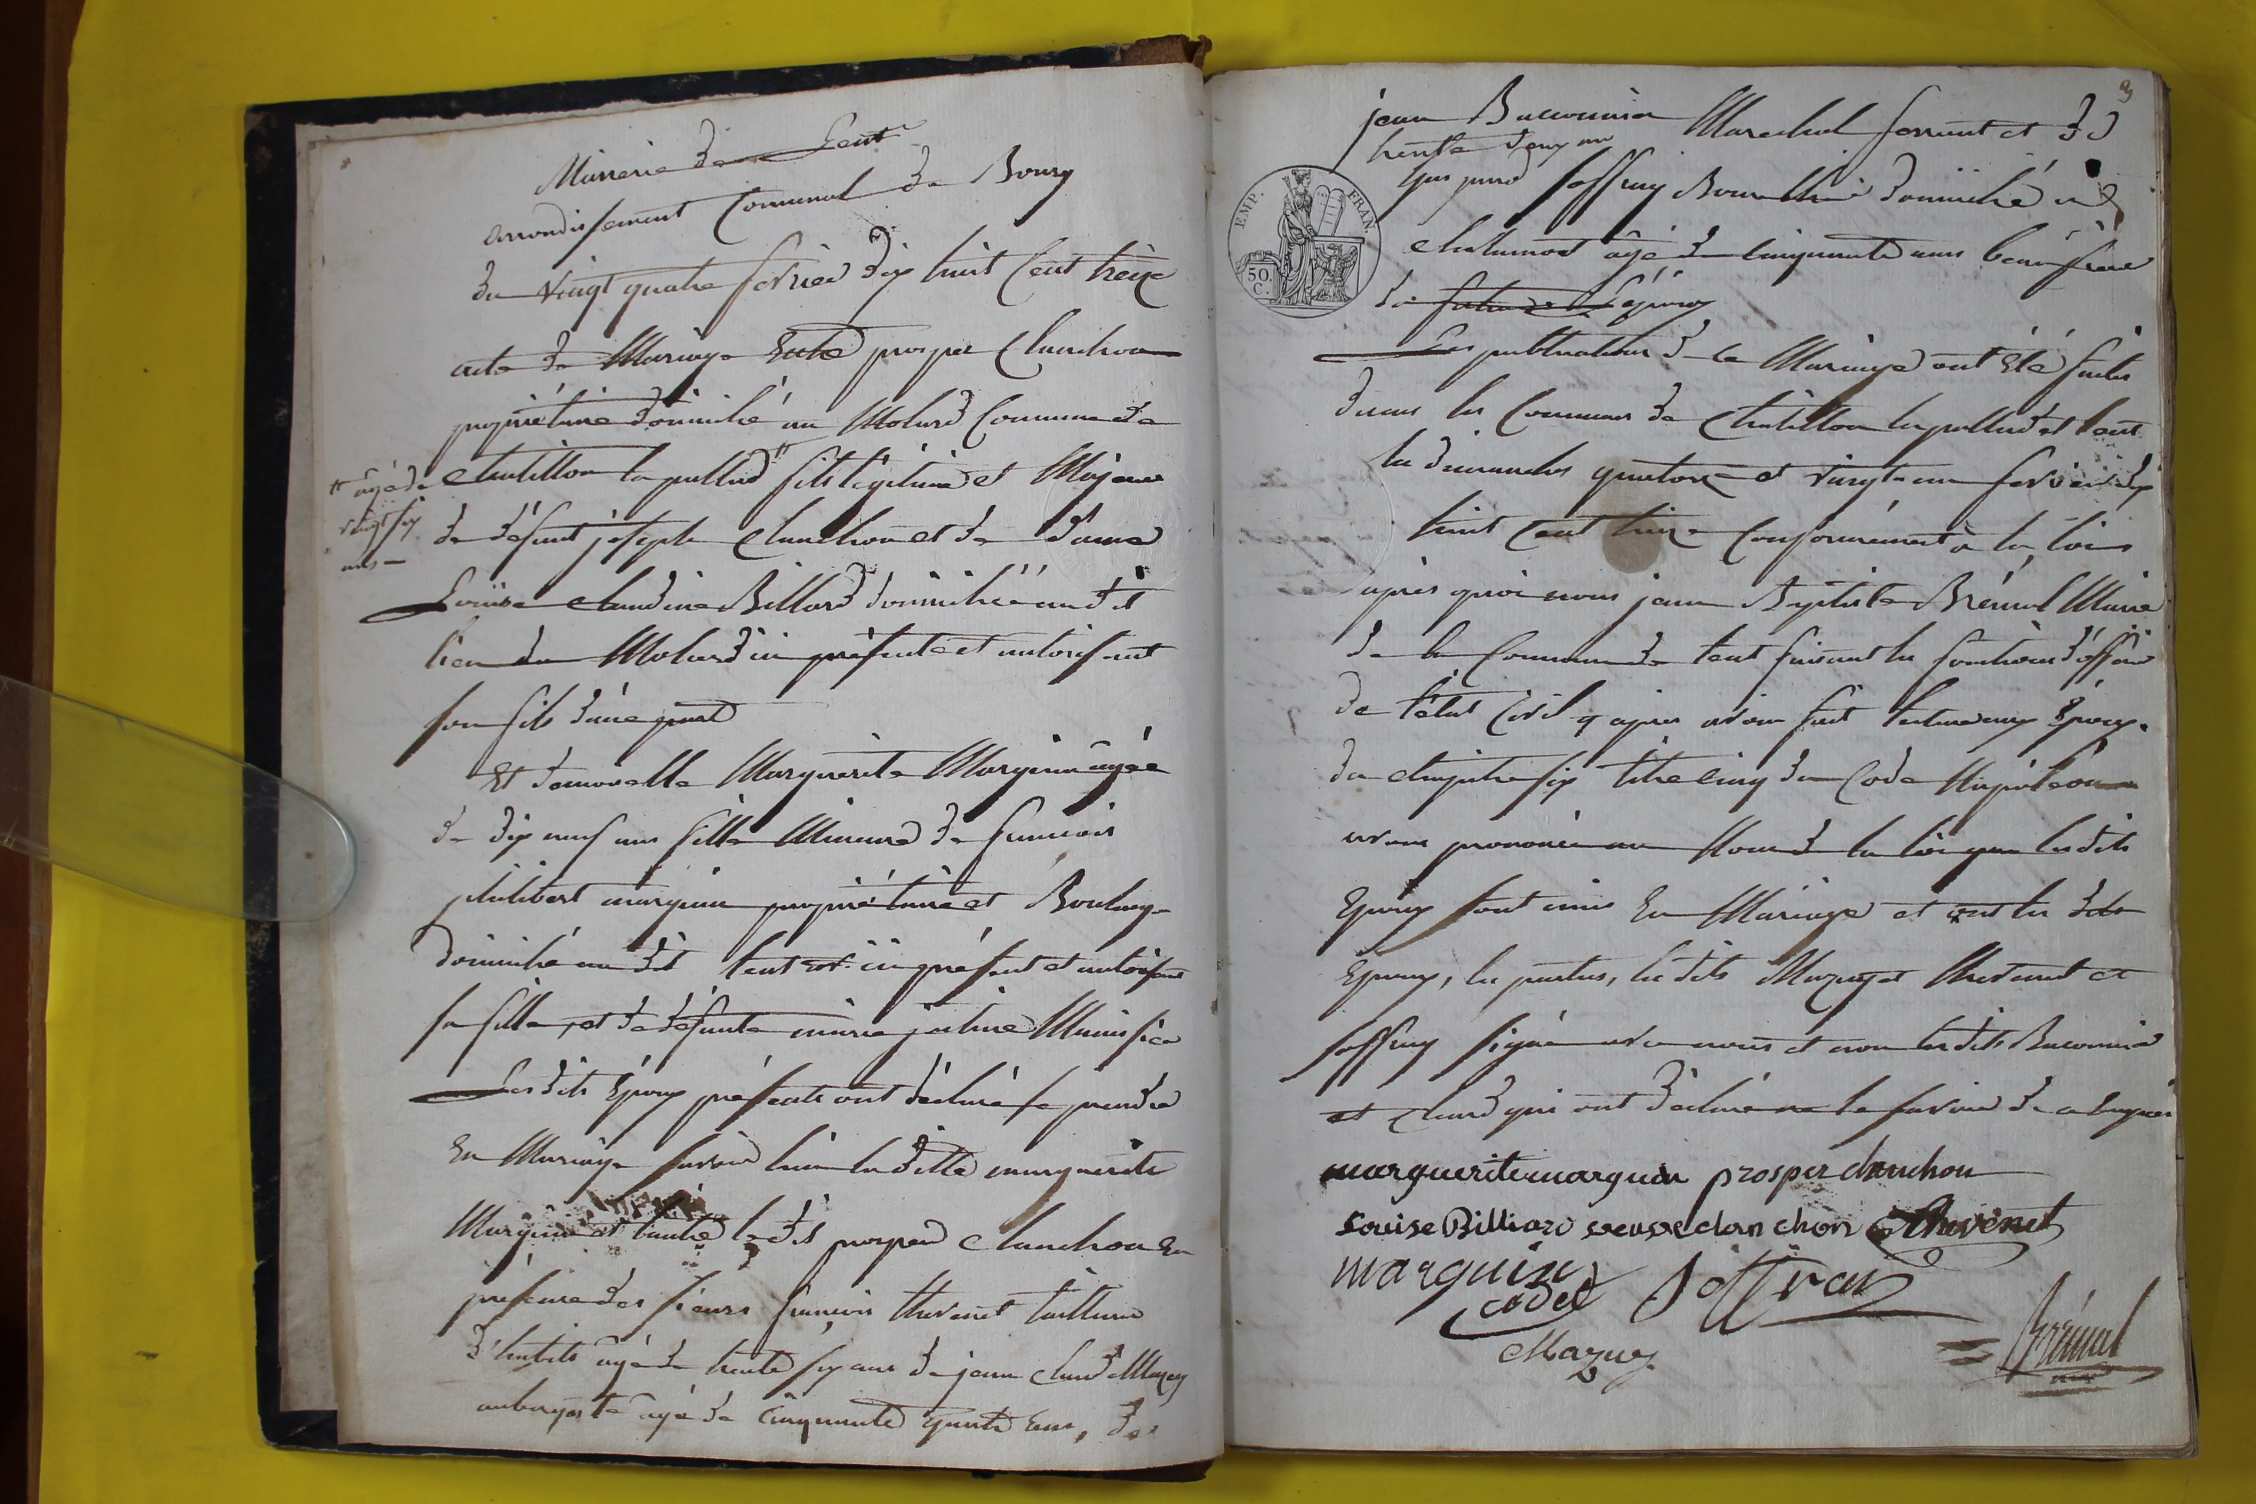 Mairerie de Lent
arrondissement Communal de Bourg
du vingt quatre fevrier dix huit Cent treize
acte de Mariage Entre prosper Chanchon
propriétaire domicilié au Molard Commune de
chatillon la pallud " fils légitime et Majeur
" agé de
vingt six
ans
de défunt joseph Chanchon et de dame
Louise Claudine Billard domiciliée au dit
lieu du Molard ici présente et autorisant
son fils d'une part
Et demoiselle Marguerite Marguin agée
de dix neuf ans fille Mineure de francois
philibert marguin propriétaire et Boulanger
domicilié au dit Lent ici présent et autorisant
sa fille, et de défunte marie justine
Les dits Epoux présents ont déclaré se prendre
En Mariage savoir lun la ditte marguerite
Marguin et lautre le dit prosper Chanchon En
présence des sieurs françois thevenet tailleur
d'habits agé de trente six ans de jean Claude Mazuy
aubergiste agé de Cinquante quatre ans, de
3
jean Buconnier Marechal ferrant et de
trente deux ans
joffray domicilié à
chalamont agé de Cinquante ans beau frère
de la future Epoux
EMP. FRAN.
50
C.
Les publications de ce Mariage ont Eté faites
dans les Communes de Chatillon la pallud et Lent
les dimanches quatorze et vingt un fevrier dix
huit Cent treize Conformément à la loi
après quoi nous jean Baptiste Brémal Maire
de la Commune de Lent faisant les fonctions d'officier
de l'état Civil, après avoir fait lecture aux Epoux
du chapitre six titre cinq du Code Napoléon
avons prononcé au Nom de la loi que les dits
Epoux sont unis En Mariage et ont les dits
Epoux, les parties, les dits Mazuy et thevenet et
joffray signé avec nous et non les dits Buconnier
et qui ont déclaré ne le savoir de ce Enquis
marguerite marguin prosper chanchon
Louise Billiard veuve clanchon Thevenet
marguin
cadet
Joffray
Mazuy
Brémal